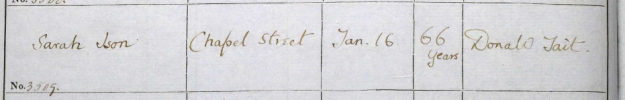 Sarah Ison Chapel Street Jan. 16 66 Years Donald Tait.
No. 3509.